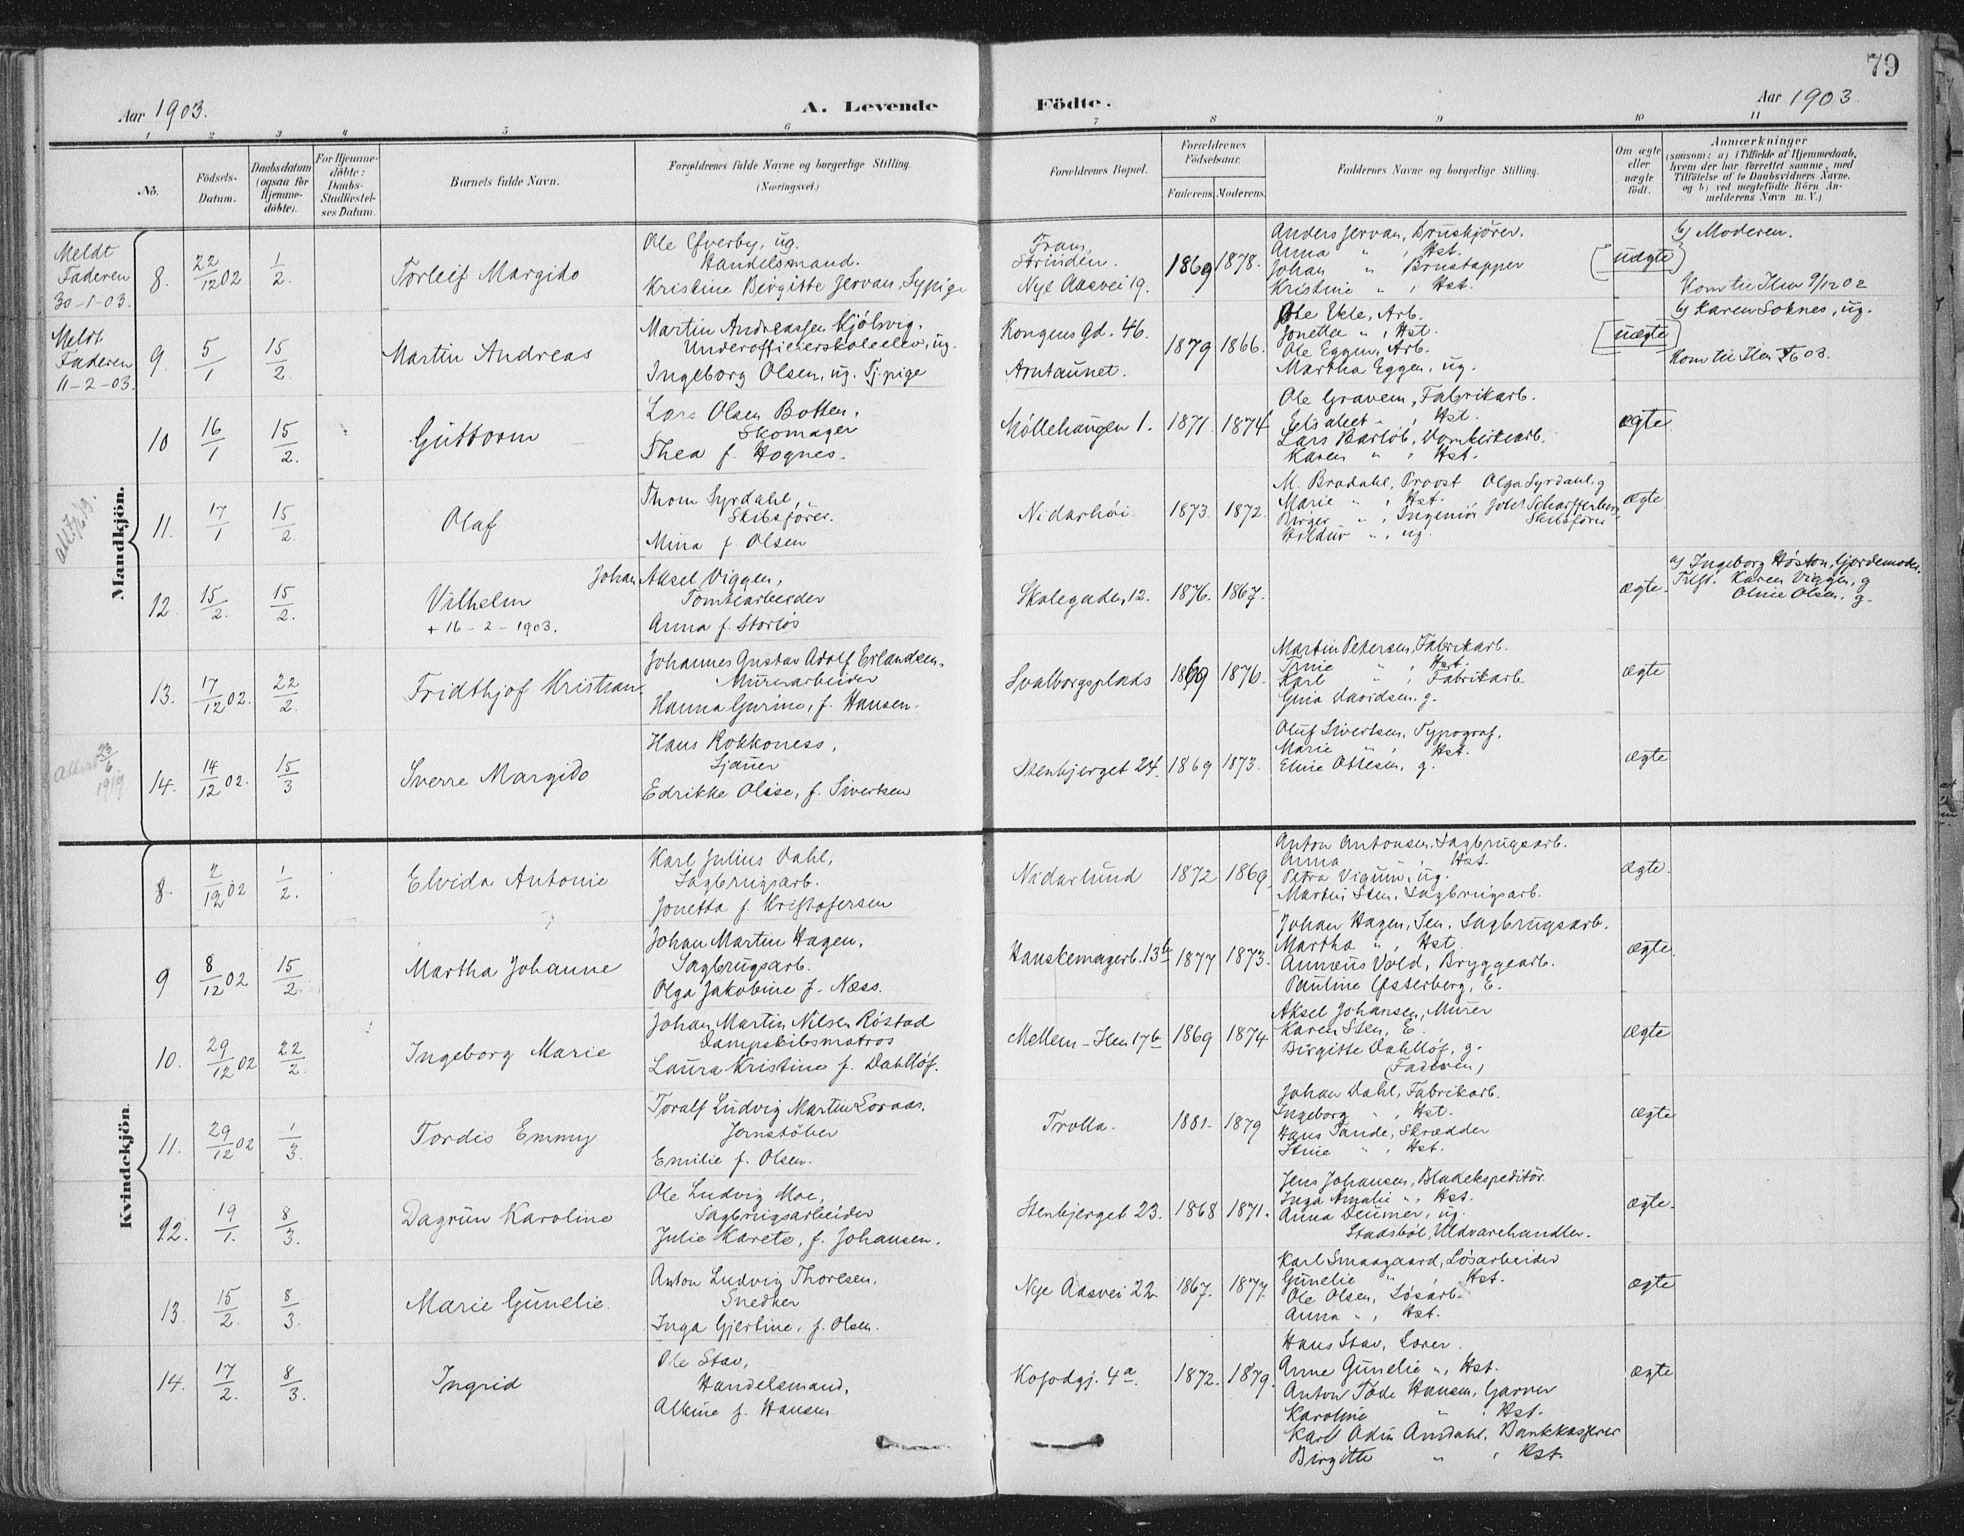 79
Aar 1903.
A. Levende
Födte.
Aar 1903.
1 2 3 4 5 6 7 8 9 10 11
No.
Födsels-Datum.
Daabsdatum (ogsaa for Hjemmedöbte).
For Hjemmedöbte: Daabs-Stadfæstelses Datum.
Barnets fulde Navn.
Forældrenes fulde Navne og borgerlige Stilling.
(Næringsvei.)
Forældrenes Bopæl.
Forældrenes Födselsaar.
Faderens. Moderens.
Faddernes Navne og borgerlige Stilling.
Om ægte eller uægte födt.
Anmærkninger
(saasom: a) i Tilfælde af Hjemmedaab, hvem der har forrettet samme, med Tilföielse af to Daabsvidners Navne, og b) ved uægtefödte Börn Anmelderens Navn m. V.)
Mandkjön.
Meldt
Faderen
30-1-03.
8. 22/12 02 1/2. Torleif Margido
Ole Øverby, ug.
Handelsmand.
Kristine Bergitte Jervan, Sypige
Strinden.
Nye Aasvei 19.
1869 1878.
Anders Jervan, Bruskjører.
Anna " , Hst.
Johan " Brustapper
Kristine " , Hst.
uægte
b) Moderen.
Kom til Ilen 9/12 02
Meldt
Faderen
11-2-03.
9. 5/1 15/2. Martin Andreas
Martin Andreassen Kjölsvig,
Underofficierskoleelev, ug.
Ingeborg Olsen, ug. Tj.pige
Kongens Gd. 46.
1879 1866.
Ole Ekle, Arb.
Jonetta " , Hst.
Ole Eggen, Arb.
Martha Eggen, ug.
uægte
b) Karen Soknes, ug.
10 16/1 15/2. Guttorm
Lars Olsen Botten,
Skomager
Thea f. Hognes.
Møllehaugen 1.
1871 1874
Ole Gravem, Fabrikarb.
Elisabeet " , Hst.
Lars Barlöb, Domkirkearb.
Karen " , Hst.
ægte
11. 17/1 15/2. Olaf
Thom Syrdahl,
Skibsfører.
Mina f. Olsen
Nidarhøi.
1873. 1872.
M. Brodahl, Provst Olga Syrdahl, g
Marie " , Hst.
Birger " , Ingeniør
Skibsfører
Hildur " , ug.
ægte
12. 15/2. 15/2. Vilhelm
+ 16-2-1903.
Johan Aksel Viggen,
Tomtearbeider
Anna f. Storløs
Skolegaden 12.
1876. 1867.
ægte.
a) Ingeborg Høston, Gjordemoder.
Tilst. Karen Viggen, g
Oline Olsen, g.
13. 17/12 02. 22/2. Fridthjof Kristian
Johannes Gustav Adolf Erlandsen,
Murerarbeider
Hanna Gurine, f. Hansen.
Svalborgsplads
1869 1876.
Martin Petersen, Fabrikarb.
Trine " , Hst.
Karl " , Fabrikarb
Gina Davidsen, g.
ægte
23/6 1919
14. 14/12 02. 15/3 Sverre Margido
Hans Rokkoness,
Sjauer
Edrikke Olise, f. Sivertsen
Stenbjerget 24.
1869 1873.
Oluf Sivertsen, Typograf,
Marie " , Hst.
Eline Ottesen, g.
ægte
Kvindekjön.
8. 2/12 02 1/2. Elvida Antonie
Karl Julius Dahl,
Sagbrugsarb.
Jonetta f. Kristofersen
Nidarlund
1872 1869.
Anton Antonsen, Sagbrugsarb.
Anna " , Hst.
Petra Vigum, ug.
Martin Sten, Sagbrugsarb.
ægte.
9 8/12 02 15/2. Martha Johanne
Johan Martin Hagen,
Sagbrugsarb.
Olga Jakobine f. Næss.
Hanskemagerb. 13b
1877 1873.
Johan Hagen, Sen. Sagbrugsarb.
Martha " , Hst.
Annæus Vold, Bryggearb.
Pauline Østerberg, E.
ægte.
10. 29/12 02 22/2. Ingeborg Marie
Johan Martin Nilsen Röstad
Dampskibsmatros
Laura Kristine f. Dahllöf.
Mellem-Ilen 17b
1869 1874
Aksel Johansen, Murer
Karen Sten, E.
Birgitte Dahllöf, g.
(Faderen)
ægte
11. 29/12 02 1/3. Tordis Emmy
Toralf Ludvig Martin Soraas,
Jernstöber
Emilie f. Olsen.
Trolla.
1881- 1879
Johan Dahl, Fabrikarb.
Ingeborg " , Hst.
Hans Tande, Skrædder
Stine " , Hst.
ægte
12. 19/1. 8/3. Dagrun Karoline
Ole Ludvig Moe,
Sagbrugsarbeider
Julie Karete, f. Johansen.
Stenbjerget 23.
1868 1871.
Jens Johansen, Bladekspeditör.
Inga Amalie ", Hst.
Anna Deumer, ug.
Stadsböl, Uldvarehandler.
ægte.
13. 15/2. 8/3. Marie Gunelie.
Anton Ludvig Thoresen,
Snedker
Inga Gjertine, f. Olsen.
Nye Aasvei 22.
1867. 1877.
Karl Smaagaard, Løsarbeider
Gunelie " , Hst.
Ole Olsen, Løsarb.
Anna " , Hst.
ægte
14. 17/2. 8/3. Ingrid
Ole Stav,
Handelsmand,
Albine f. Hansen
Kofodgj. 4a.
1872. 1879.
Hans Stav, Lorer.
Anne Gunelie ", Hst.
Anton Tøde Hansen, Garver
Karoline " , Hst.
Karl Odin Amdahl, Bankkasserer
Birgitte " , Hst.
ægte